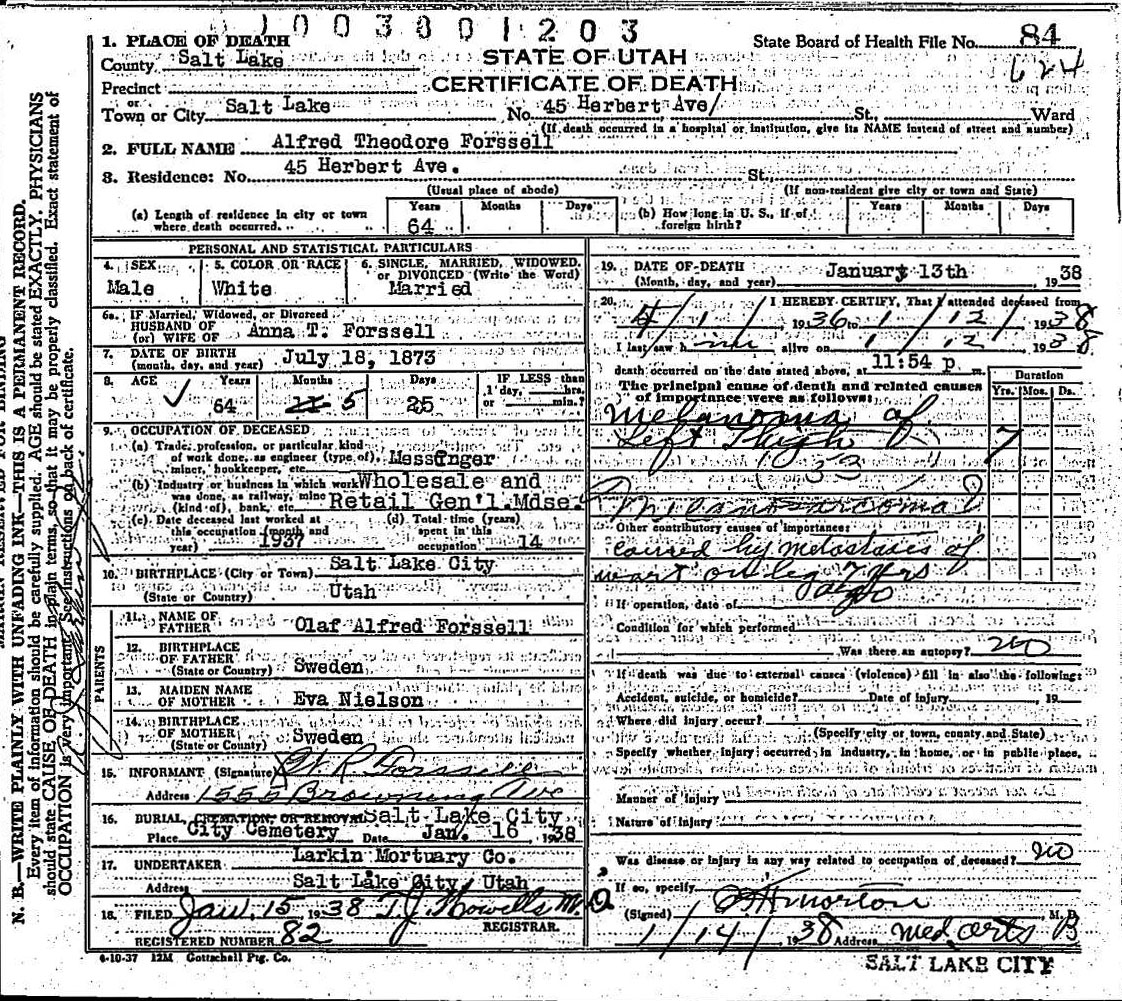 1003801203
1. PLACE OF DEATH
STATE OF UTAH
State Board of Health File No. 84
County Salt Lake
624
CERTIFICATE OF DEATH
Precinct
or
Town or City Salt Lake No. 45 Herbert Ave/ St., Ward
(If death occurred in a hospital or institution, give its NAME instead of street and number)
2. FULL NAME Alfred Theodore Forssell
3. Residence: No. 45 Herbert Ave. St.
(Usual place of abode) (If non-resident give city or town and State)
(a) Length of residence in city or town where death occurred. Years 64 Months Days
(b) How long in U. S., if of foreign birth? Years Months Days
PERSONAL AND STATISTICAL PARTICULARS
4. SEX Male
5. COLOR OR RACE White
6. SINGLE, MARRIED, WIDOWED, or DIVORCED (Write the Word) Married
6a. IF Married, Widowed, or Divorced
HUSBAND OF
(or) WIFE OF Anna T. Forssell
7. DATE OF BIRTH
(month, day, and year) July 18, 1873
8. AGE Years 64 Months 5 Days 25
IF LESS than
1 day, hrs.
or min.?
9. OCCUPATION OF DECEASED
(a) Trade, profession, or particular kind
of work done, as engineer (type of), Messenger
miner, bookkeeper, etc.
(b) Industry or business in which work Wholesale and
was done, as railway, mine
(kind of), bank, etc. Retail Gen'l. Mdse.
(c) Date deceased last worked at
this occupation (month and
year) 1937
(d) Total time (years)
spent in this
occupation 14
10. BIRTHPLACE (City or Town) Salt Lake City
(State or Country) Utah
PARENTS
11. NAME OF
FATHER Olaf Alfred Forssell
12. BIRTHPLACE
OF FATHER
(State or Country) Sweden
13. MAIDEN NAME
OF MOTHER Eva Nielson
14. BIRTHPLACE
OF MOTHER
(State or Country) Sweden
15. INFORMANT (Signature) R Forssell
Address 1555 Browning Ave
16. BURIAL, CREMATION, OR REMOVAL Salt Lake City
Place City Cemetery Date Jan. 16, 1938
17. UNDERTAKER Larkin Mortuary Co.
Address Salt Lake City, Utah
18. FILED Jan. 15, 1938 T. J. Howells M.D.
REGISTRAR.
REGISTERED NUMBER 82
6-10-37 12M Gottschall Ptg. Co.
19. DATE OF DEATH
(Month, day, and year) January 13th 1938
20. I HEREBY CERTIFY, That I attended deceased from
4/1/1936 to 1/12/1938
I last saw him alive on 1/12 1938
death occurred on the date stated above, at 11:54 p m.
The principal cause of death and related causes
of importance were as follows:
Duration
Yrs. Mos. Ds.
Melanoma of
Left Thigh 7
33
Melanosarcoma
Other contributory causes of importance:
caused by metastases of
wart on leg 7 yrs
ago
If operation, date of
Condition for which performed
Was there an autopsy? no
If death was due to external causes (violence) fill in also the following:
Accident, suicide, or homicide? Date of injury 19
Where did injury occur?
(Specify city or town, county and State)
Specify whether injury occurred in industry, in home, or in public place,
Manner of injury
Nature of injury
Was disease or injury in any way related to occupation of deceased? no
If so, specify
(Signed) Morton M. D.
1/14/1938 Address Med. Arts B
SALT LAKE CITY
N. B.—WRITE PLAINLY WITH UNFADING INK—THIS IS A PERMANENT RECORD.
Every item of information should be carefully supplied. AGE should be stated EXACTLY. PHYSICIANS
should state CAUSE OF DEATH in plain terms, so that it may be properly classified. Exact statement of
OCCUPATION is very important. See instructions on back of certificate.